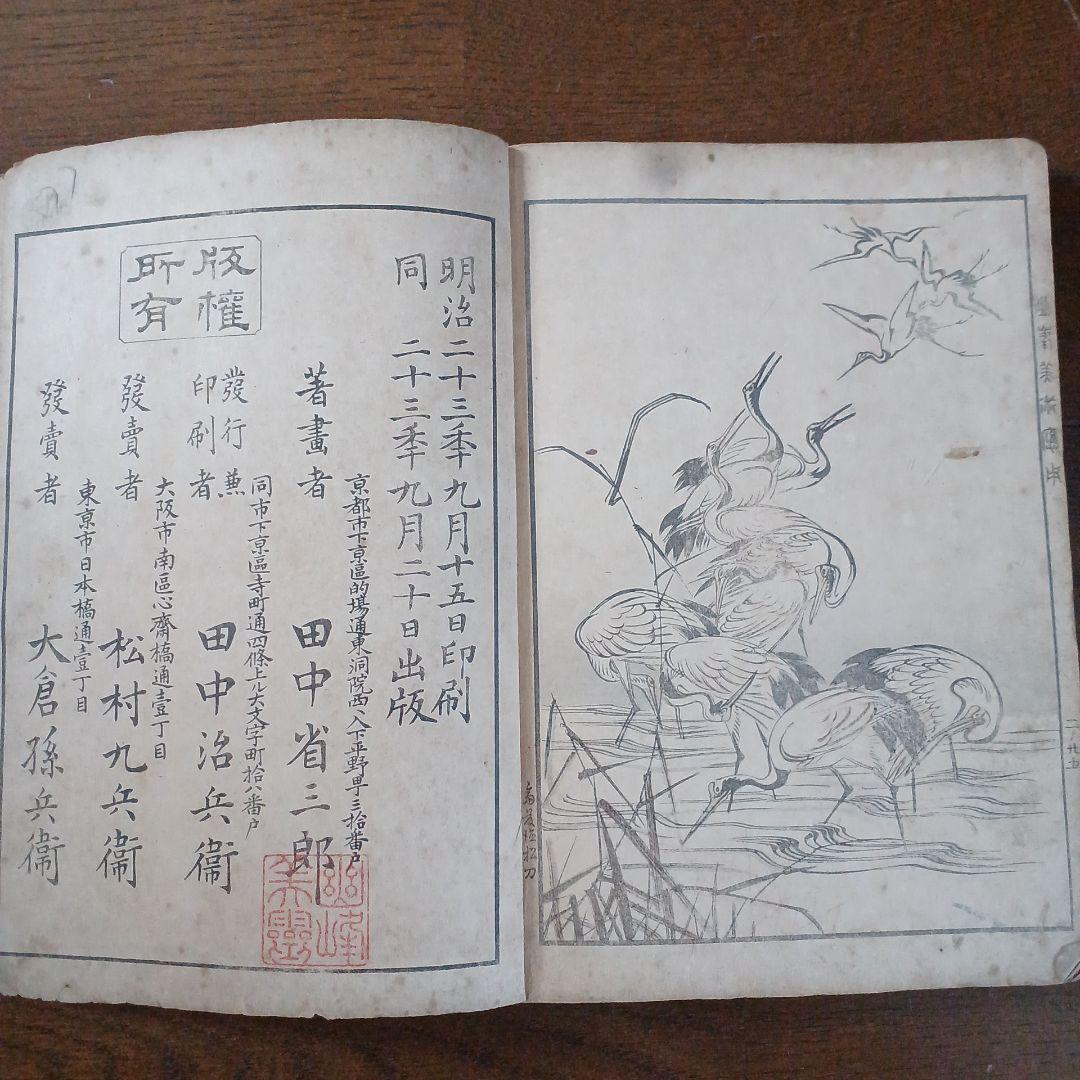 版權
所有
明治二十三季九月十五日印刷
同 二十三季九月二十日出版
京都市下京區的場通東洞院西入下平野町三拾番戸
著畫者 田中省三郎
同市下京區寺町通四條上ル大文字町拾六番戸
發行兼
印刷者 田中治兵衞
大阪市南區心齋橋通壹丁目
發賣者 松村九兵衞
東京市日本橋通壹丁目
發賣者 大倉孫兵衞
美術圖
二ノ廿五